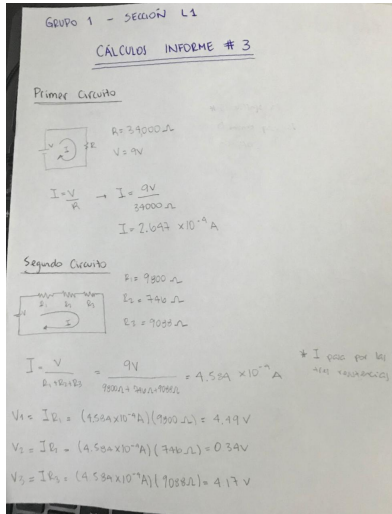 GRUPO 1 - SECCIÓN L1
CÁLCULOS INFORME # 3
Primer Circuito
V I R
R = 34000 Ω
V = 9V
I = V/R → I = 9V/34000 Ω
I = 2.647 × 10⁻⁴ A
Segundo Circuito
R₁ = 9800 Ω
R₂ = 746 Ω
R₃ = 9088 Ω
I
I = V/(R₁+R₂+R₃) = 9V/(9800Ω + 746Ω + 9088Ω) = 4.584 × 10⁻⁴ A
* I pasa por las
tres resistencias
V₁ = IR₁ = (4.584×10⁻⁴A)(9800 Ω) = 4.49 V
V₂ = IR₂ = (4.584×10⁻⁴A)(746 Ω) = 0.34V
V₃ = IR₃ = (4.584×10⁻⁴A)(9088Ω) = 4.17 V